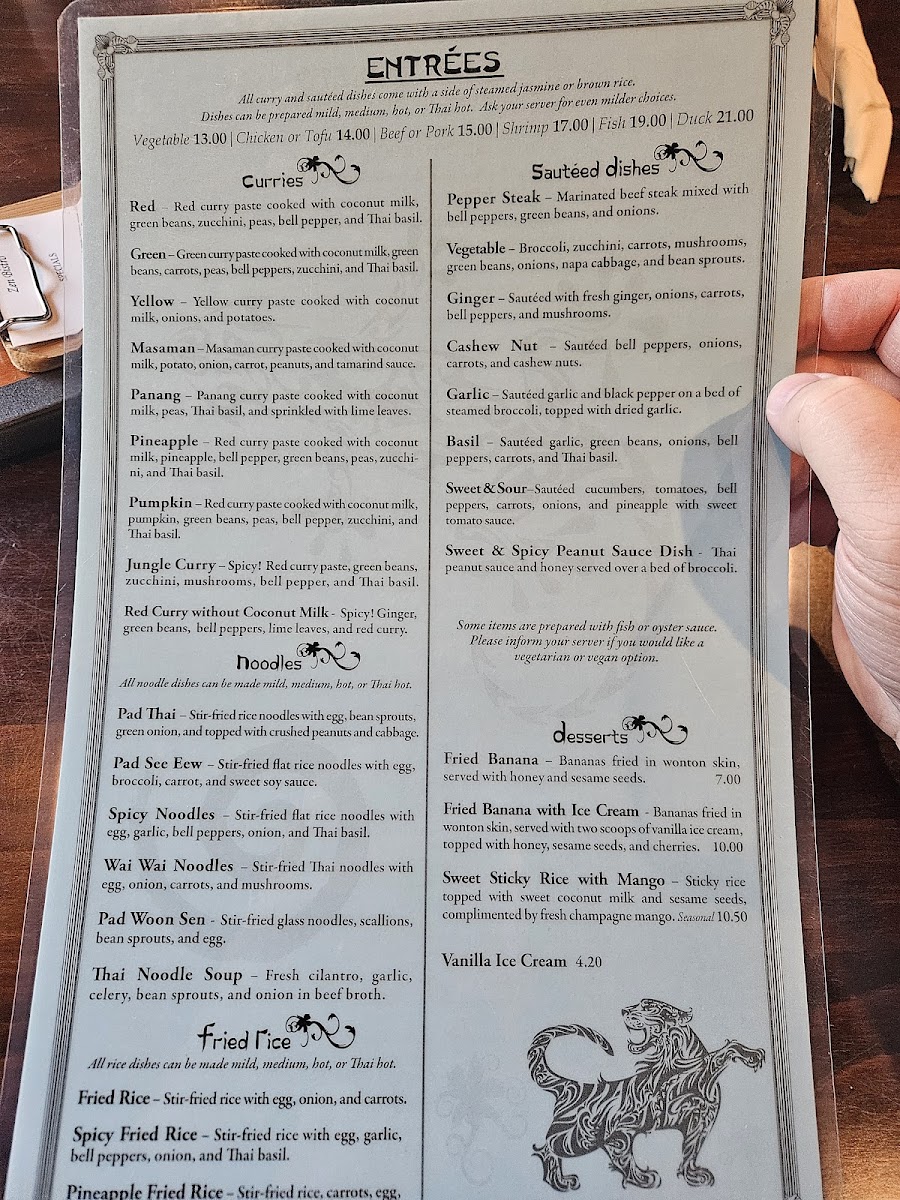 ENTRÉES
All curry and sautéed dishes come with a side of steamed jasmine or brown rice.
Dishes can be prepared mild, medium, hot, or Thai hot. Ask your server for even milder choices.
Vegetable 13.00 | Chicken or Tofu 14.00 | Beef or Pork 15.00 | Shrimp 17.00 | Fish 19.00 | Duck 21.00
Curries
Red – Red curry paste cooked with coconut milk,
green beans, zucchini, peas, bell pepper, and Thai basil.
Green – Green curry paste cooked with coconut milk, green
beans, carrots, peas, bell peppers, zucchini, and Thai basil.
Yellow – Yellow curry paste cooked with coconut
milk, onions, and potatoes.
Masaman – Masaman curry paste cooked with coconut
milk, potato, onion, carrot, peanuts, and tamarind sauce.
Panang – Panang curry paste cooked with coconut
milk, peas, Thai basil, and sprinkled with lime leaves.
Pineapple – Red curry paste cooked with coconut
milk, pineapple, bell pepper, green beans, peas, zucchi-
ni, and Thai basil.
Pumpkin – Red curry paste cooked with coconut milk,
pumpkin, green beans, peas, bell pepper, zucchini, and
Thai basil.
Jungle Curry – Spicy! Red curry paste, green beans,
zucchini, mushrooms, bell pepper, and Thai basil.
Red Curry without Coconut Milk - Spicy! Ginger,
green beans, bell peppers, lime leaves, and red curry.
Noodles
All noodle dishes can be made mild, medium, hot, or Thai hot.
Pad Thai – Stir-fried rice noodles with egg, bean sprouts,
green onion, and topped with crushed peanuts and cabbage.
Pad See Eew – Stir-fried flat rice noodles with egg,
broccoli, carrot, and sweet soy sauce.
Spicy Noodles – Stir-fried flat rice noodles with
egg, garlic, bell peppers, onion, and Thai basil.
Wai Wai Noodles – Stir-fried Thai noodles with
egg, onion, carrots, and mushrooms.
Pad Woon Sen - Stir-fried glass noodles, scallions,
bean sprouts, and egg.
Thai Noodle Soup – Fresh cilantro, garlic,
celery, bean sprouts, and onion in beef broth.
Fried rice
All rice dishes can be made mild, medium, hot, or Thai hot.
Fried Rice – Stir-fried rice with egg, onion, and carrots.
Spicy Fried Rice – Stir-fried rice with egg, garlic,
bell peppers, onion, and Thai basil.
Pineapple Fried Rice – Stir-fried rice, carrots, egg,
Sautéed dishes
Pepper Steak – Marinated beef steak mixed with
bell peppers, green beans, and onions.
Vegetable – Broccoli, zucchini, carrots, mushrooms,
green beans, onions, napa cabbage, and bean sprouts.
Ginger – Sautéed with fresh ginger, onions, carrots,
bell peppers, and mushrooms.
Cashew Nut – Sautéed bell peppers, onions,
carrots, and cashew nuts.
Garlic – Sautéed garlic and black pepper on a bed of
steamed broccoli, topped with dried garlic.
Basil – Sautéed garlic, green beans, onions, bell
peppers, carrots, and Thai basil.
Sweet & Sour–Sautéed cucumbers, tomatoes, bell
peppers, carrots, onions, and pineapple with sweet
tomato sauce.
Sweet & Spicy Peanut Sauce Dish - Thai
peanut sauce and honey served over a bed of broccoli.
Some items are prepared with fish or oyster sauce.
Please inform your server if you would like a
vegetarian or vegan option.
desserts
Fried Banana – Bananas fried in wonton skin,
served with honey and sesame seeds. 7.00
Fried Banana with Ice Cream - Bananas fried in
wonton skin, served with two scoops of vanilla ice cream,
topped with honey, sesame seeds, and cherries. 10.00
Sweet Sticky Rice with Mango – Sticky rice
topped with sweet coconut milk and sesame seeds,
complimented by fresh champagne mango. Seasonal 10.50
Vanilla Ice Cream 4.20
Zen Bistro
SPECIALS